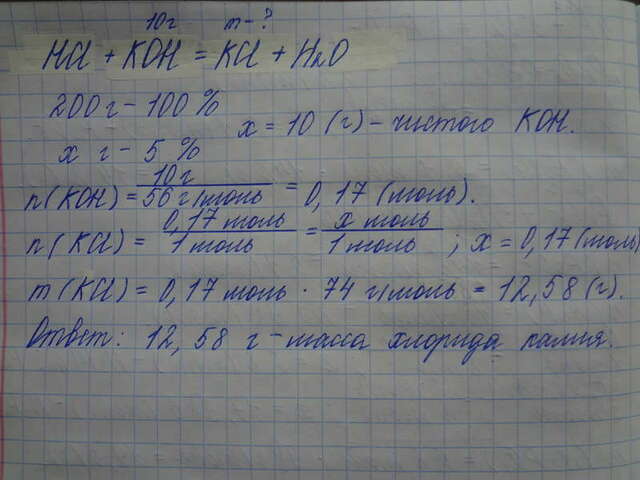 10г m-?
HCl + KOH = KCl + H2O
200 г - 100 %
x = 10 (г) - чистого KOH.
x г - 5 %
n(KOH) = 10 г / 56 г/моль = 0,17 (моль).
n(KCl) = 0,17 моль / 1 моль = x моль / 1 моль ; x = 0,17 (моль)
m (KCl) = 0,17 моль · 74 г/моль = 12,58 (г).
Ответ: 12,58 г - масса хлорида калия.